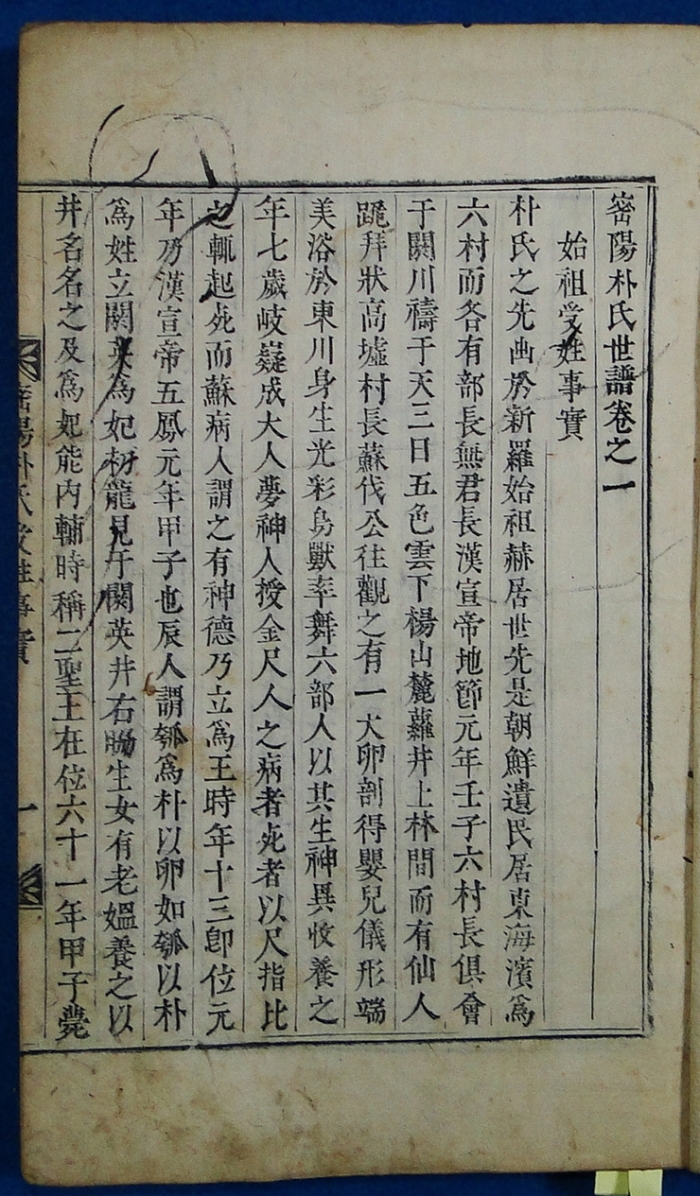 密陽朴氏世譜卷之一
始祖受姓事實
朴氏之先出於新羅始祖赫居世先是朝鮮遺民居東海濱爲
六村而各有部長無君長漢宣帝地節元年壬子六村長俱會
于閼川禱于天三日五色雲下楊山麓蘿井上林間而有仙人
跪拜狀高墟村長蘇伐公往觀之有一大卵剖得嬰兒儀形端
美浴於東川身生光彩鳥獸率舞六部人以其生神異收養之
年七歲岐嶷成大人夢神人授金尺人之病者死者以尺指比
之輒起死而蘇病人謂之有神德乃立爲王時年十三卽位元
年乃漢宣帝五鳳元年甲子也辰人謂瓠爲朴以卵如瓠以朴
爲姓立閼英爲妃初龍見于閼英井右脇生女有老嫗養之以
井名名之及爲妃能內輔時稱二聖王在位六十一年甲子薨
密陽朴氏受姓事實
一